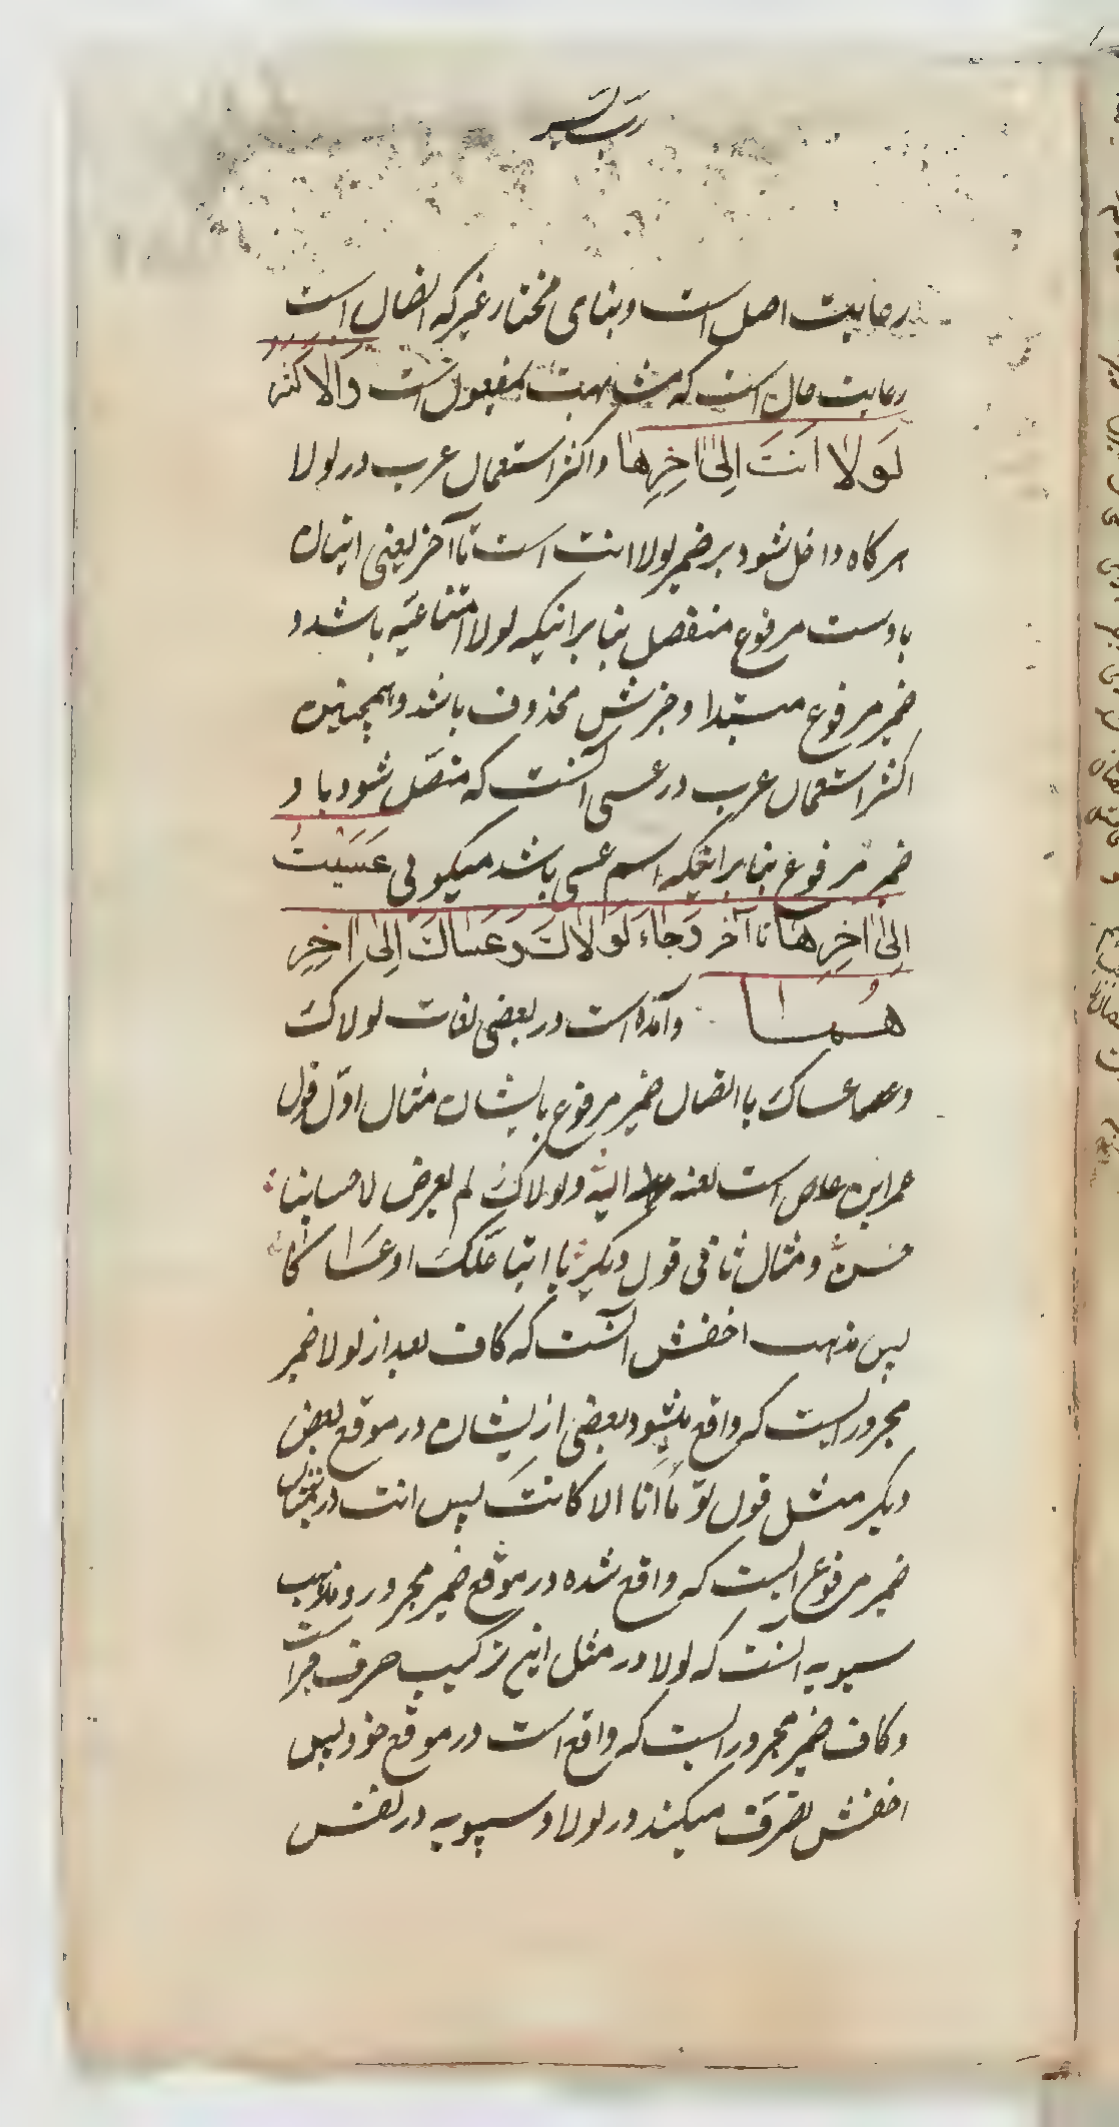 رب یسر
رعایت اصل است و بنای مختار غیر که اتصال است
رعایت حال است که مشابهت بمفعول است وَالاکثر
لَولا اَنتَ اِلیٰ اخِرِها و اکثر استعمال عرب در لولا
هرگاه داخل شود بر ضمیر لولا انت است تا آخر یعنی اتیان
باوست مرفوع منفصل بنا برانیکه لولا امتناعیّه باشد و
ضمیر مرفوع مبتدا و خبرش محذوف باشد و همچنین
اکثر استعمال عرب در عسی آنست که متصّل شود باو
ضمیر مرفوع بنا برانیکه اسم عسی باشد میکوئی عَسَیتَ
اِلیٰ اخِرِها تا آخر وَجاءَ لَولاکَ وَعَساکَ اِلیٰ اخِرِ
هُما و آمده است در بعضی لغات لولاک
و عساک با اتصال ضمیر مرفوع بایشان مثال اوّل قول
عمرابن عاص است لعنه الله ولولاکَ لم یعرض لاحسابنا
حسن و مثال ثانی قول دیگر یا ابتا علّکَ او عَساکا
پس مذهب اخفش آنست که کاف بعد از لولا ضمیر
مجروریست که واقع میشود بعضی ازیشان در موقع بعض
دیگر مثل قول تو مَا انا الا کانتَ پس انت درینمثال
ضمیر مرفوعیست که واقع شده در موقع ضمیر مجرور و مذهب
سیبویه آنست که لولا در مثل این ترکیب حرف جر است
و کاف ضمیر مجروریست که واقع است در موقع خود پس
اخفش تصّرف میکند در لولا و سیبویه در نفس